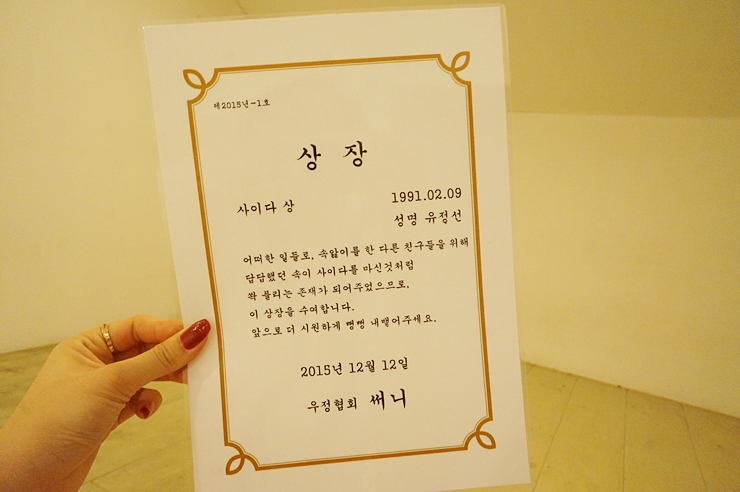 제2015년-1호
상 장
사이다 상
1991.02.09
성명 유정선
어떠한 일들로, 속앓이를 한 다른 친구들을 위해
답답했던 속이 사이다를 마신것처럼
쫙 풀리는 존재가 되어주었으므로,
이 상장을 수여합니다.
앞으로 더 시원하게 뻥뻥 내뱉어주세요.
2015년 12월 12일
우정협회 써니